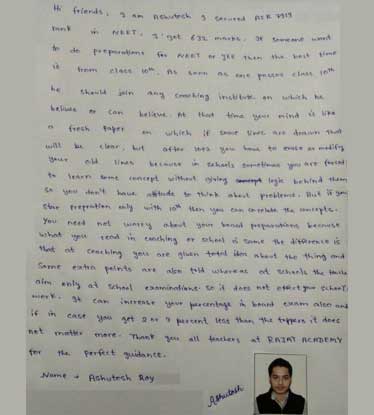 Hi friends, I am Ashutosh I secured AIR 7919
rank in NEET. I get 632 marks. If someone want
to do preparations for NEET or JEE then the best time
is from class 10th. As soon as one passes class 10th
he should join any coaching institute on which he
believe or can believe. At that time your mind is like
a fresh paper on which if some lines are drawn that
will be clear, but after lots you have to erase or modify
your old lines because in schools sometimes you are forced
to learn some concept without giving concept logic behind them
so you don't have attitude to think about problems. But if you
star prepration only with 10th then you can corelate the concepts.
You need not worry about your board preparations because
what you read in coaching or school is same the difference is
that at coaching you are given total idea about the thing and
some extra points are also told whereas at schools the
aim only at school examinations. so it does not effect your school
work. It can increase your percentage in board exam also and
if in case you get 2 or 3 percent less than the toppers it does
not matter more. Thank you all teachers at RAJAT ACADEMY
for the perfect guidance.
Name → Ashutosh Roy
Ashutosh